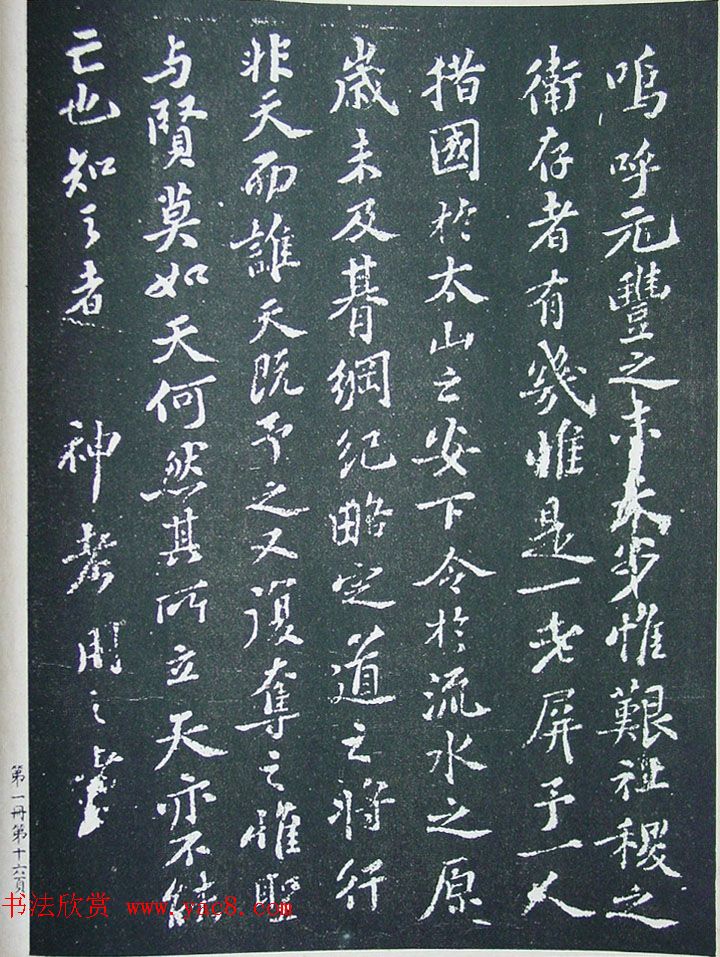 嗚呼元豐之末天步惟艱社稷之
衛存者有幾惟是一老屏予一人
措國於太山之安下令於流水之原
歲未及朞綱紀略定道之將行
非天而誰天既予之又復奪之惟聖
与賢莫如天何然其所立天亦不能
亡也知之者 神考用之者
第一冊第十六頁
书法欣赏 www.yac8.com